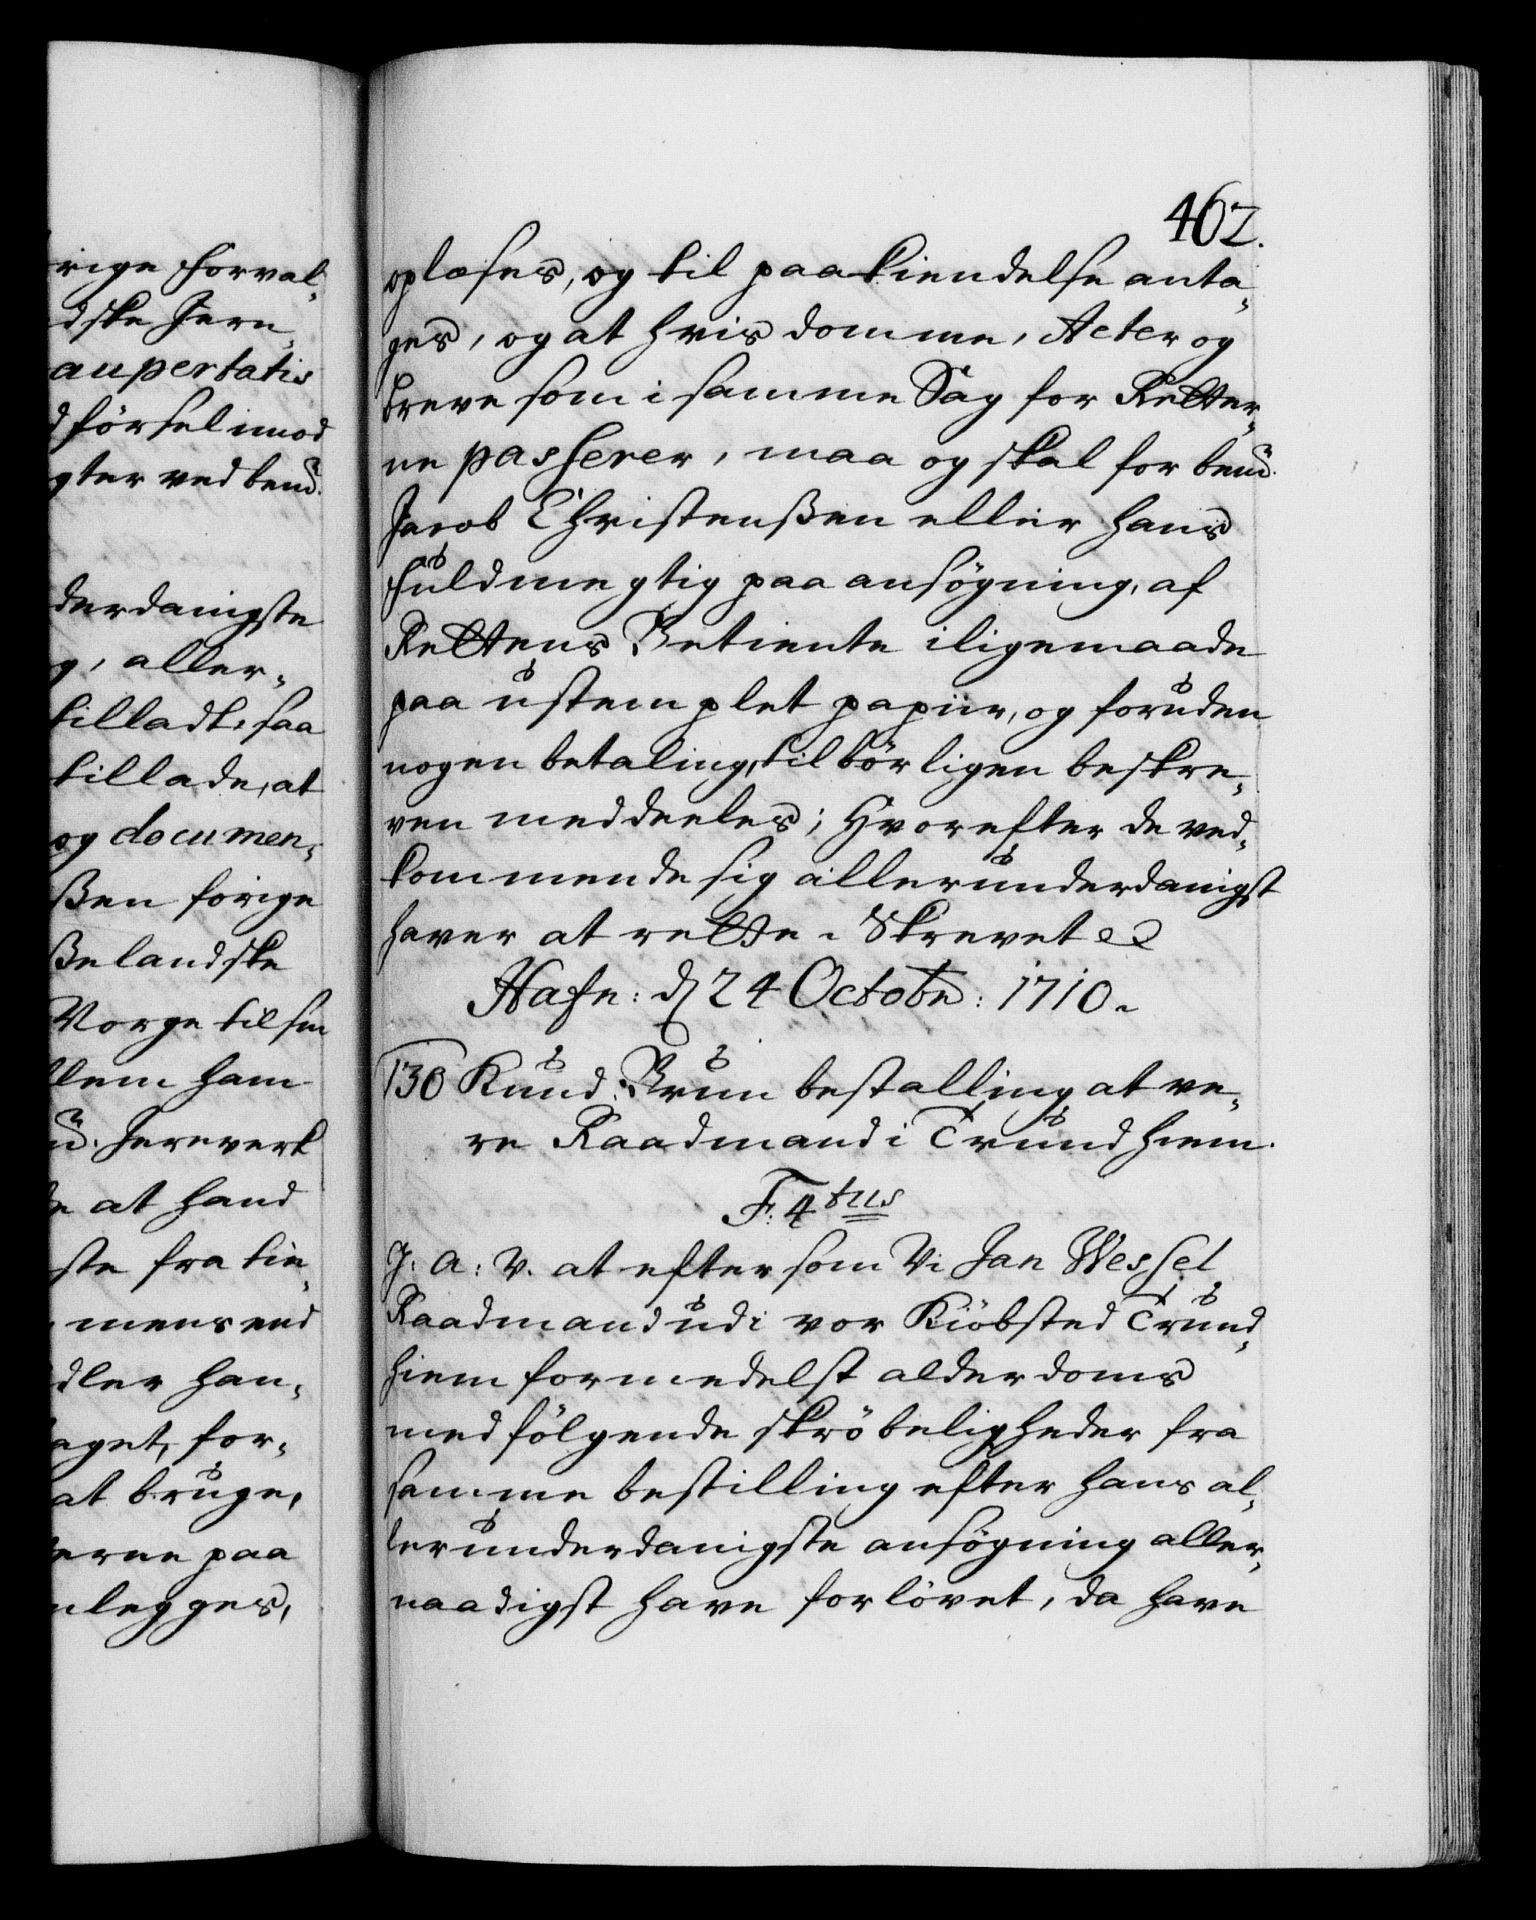 rige forval-
dske Jern
aupertatis
dförsel imod
gter ved bem:
derdanigste
g, aller-
tilladt, saa
tillade, at
og documen-
ßen forige
ßelandske
Norge til sin
lem ham
Jernverk
at hand
ste fra tin-
mens end
dler han-
aget, for-
at bruge,
erne paa
legges,
462.
oplæses, og til paakiendelse anta-
ges, og at hvis domme, Acter og
breve som i samme Sag for Retter-
ne passerer, maa og skal for bem:
Jacob Christenßen eller hans
fuldmegtig paa ansögning, af
Rettens Betiente iligemaade
paa ustemplet papiir, og foruden
nogen betaling, tilbörligen beskre-
ven meddeeles; Hvorefter de ved-
kommende sig allerunderdanigst
haver at rette. Skrevet etc
Hafn: d 24 Octobr: 1710.
130 Knud Brun bestalling at ve-
re Raadmand i Trundhiem.
F: 4tus
G: A: V. at eftersom Vi Jan Wessel
Raadmand udi vor Kiöbsted Trund-
hiem formedelst alderdoms
medfölgende skröbeligheder fra
samme bestilling efter hans al-
lerunderdanigste ansögning aller-
naadigst have forlövet, da have